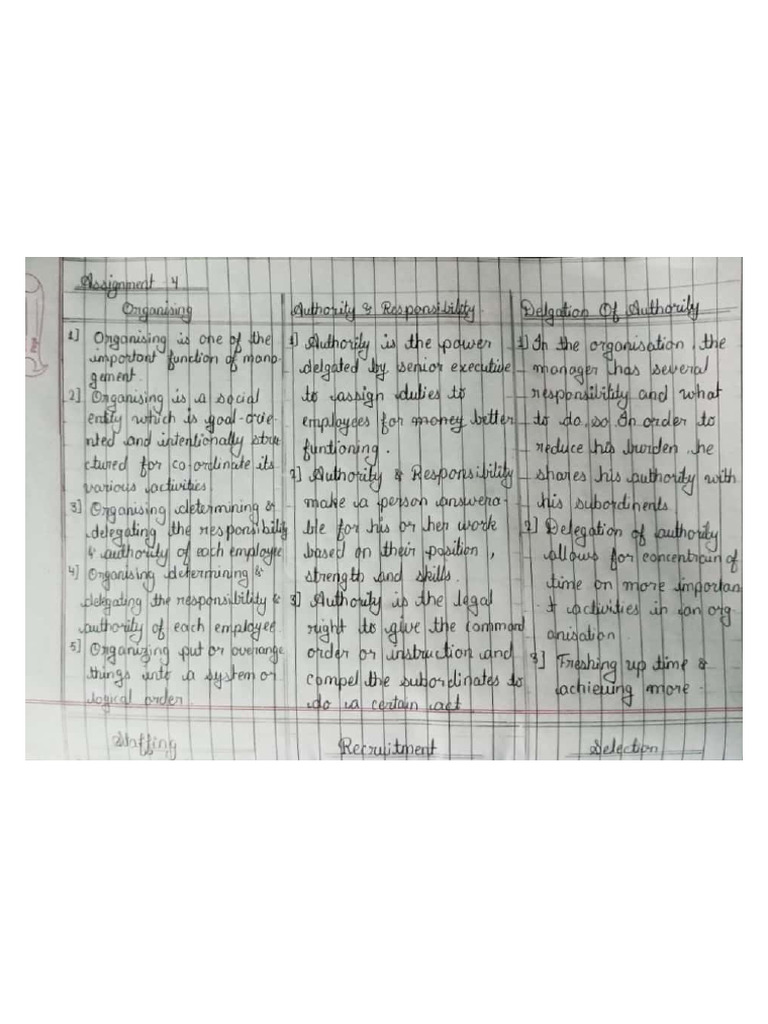 Assignment 4
Organising
1] Organising is one of the
important function of mana-
gement.
2] Organising is a social
entity which is goal-orie-
nted and intentionally stru-
ctured for co-ordinate its
various activities.
3] Organising determining &
delegating the responsibility
& authority of each employee
4] Organising determining &
delegating the responsibility &
authority of each employee
5] Organizing put or overange
things into a system or
logical order.
Authority & Responsibility
1] Authority is the power
delgated by senior executive
to assign duties to
employees for money better
funtioning.
2] Authority & Responsibility
make a person answera-
ble for his or her work
based on their position,
strength and skills.
3] Authority is the legal
right to give the command
order or instruction and
compel the subordinates to
do a certain act
Delgation Of Authority
1] In the organisation, the
manager has several
responsibility and what
to do, so In order to
reduce his burden, he
shares his authority with
his subordinents.
2] Delegation of authority
allows for concentrain of
time on more importan
t activities in an org
anisation.
3] Freshing up time &
achieving more.
Staffing
Recruitment
Selection